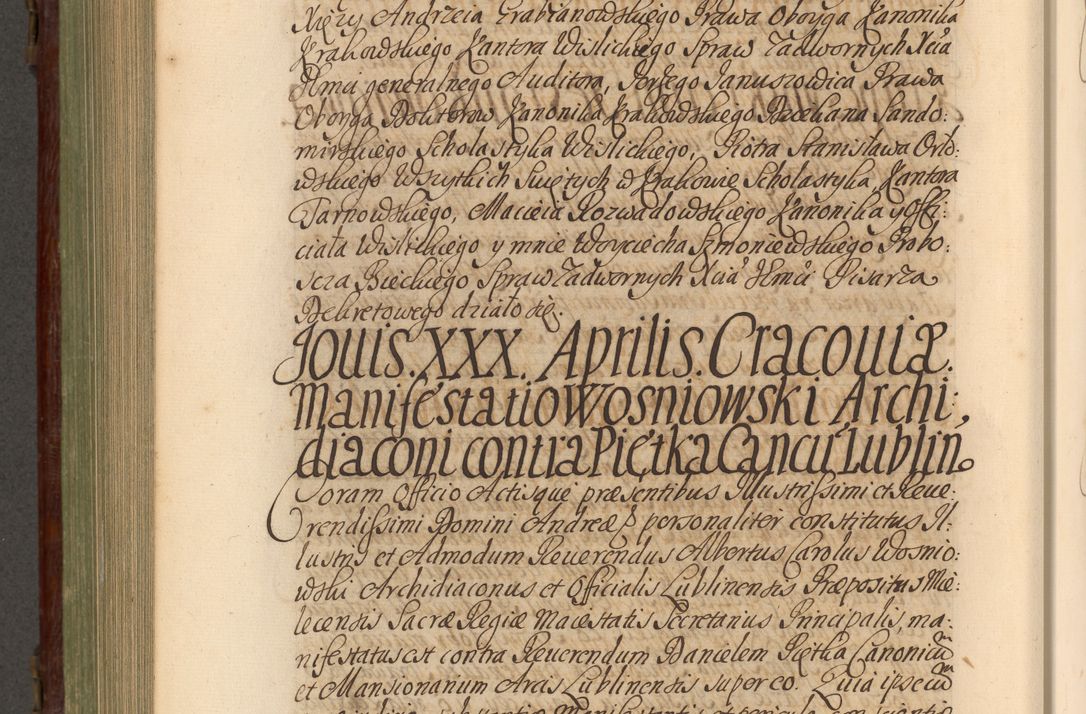 Xięży Andrzeia Grabianowskiego Prawa Oboyga Kanonika
Krakowskiego Kantora Wislickiego Spraw Zadwornych Xcia
Jmci generalnego Auditora, Jerzego Januszowica Prawa
Oboyga Doktorow Kanonika Krakowskiego Dziekana Sando:
mirskiego Scholastyka Wislickiego, Piotra Stanisława Orło:
wskiego Wszytkich Swiętych w Krakowie Scholastyka, Kantora
Tarnowskiego, Macieia Rozwadowskiego Kanonika y Offi:
ciała Wislickiego y mnie Woyciecha Szmoniewskiego Probo:
szcza Bieckiego Spraw Zadwornych Xcia Jmci Pisarza
Dekretowego działo się.
Jouis. XXX. Aprilis. Cracouiæ.
Manifestatio Wosniowski Archi:
diaconi contra Piętka Cancu Lublin.
Coram Officio Actisque præsentibus Illustrissimi et Reue:
rendissimi Domini Andreæ personaliter constitutus Il:
lustris et Admodum Reuerendus Albertus Carolus Wosnio:
wski Archidiaconus et Officialis Lublinensis Præpositus Mie:
lecensis Sacræ Regiæ Maiestatis Secretarius Principalis, ma:
nifestatus est contra Reuerendum Danielem Piętka Canonicū
et Mansionarium Arcis Lublinensis super eo. Quia ipse cū